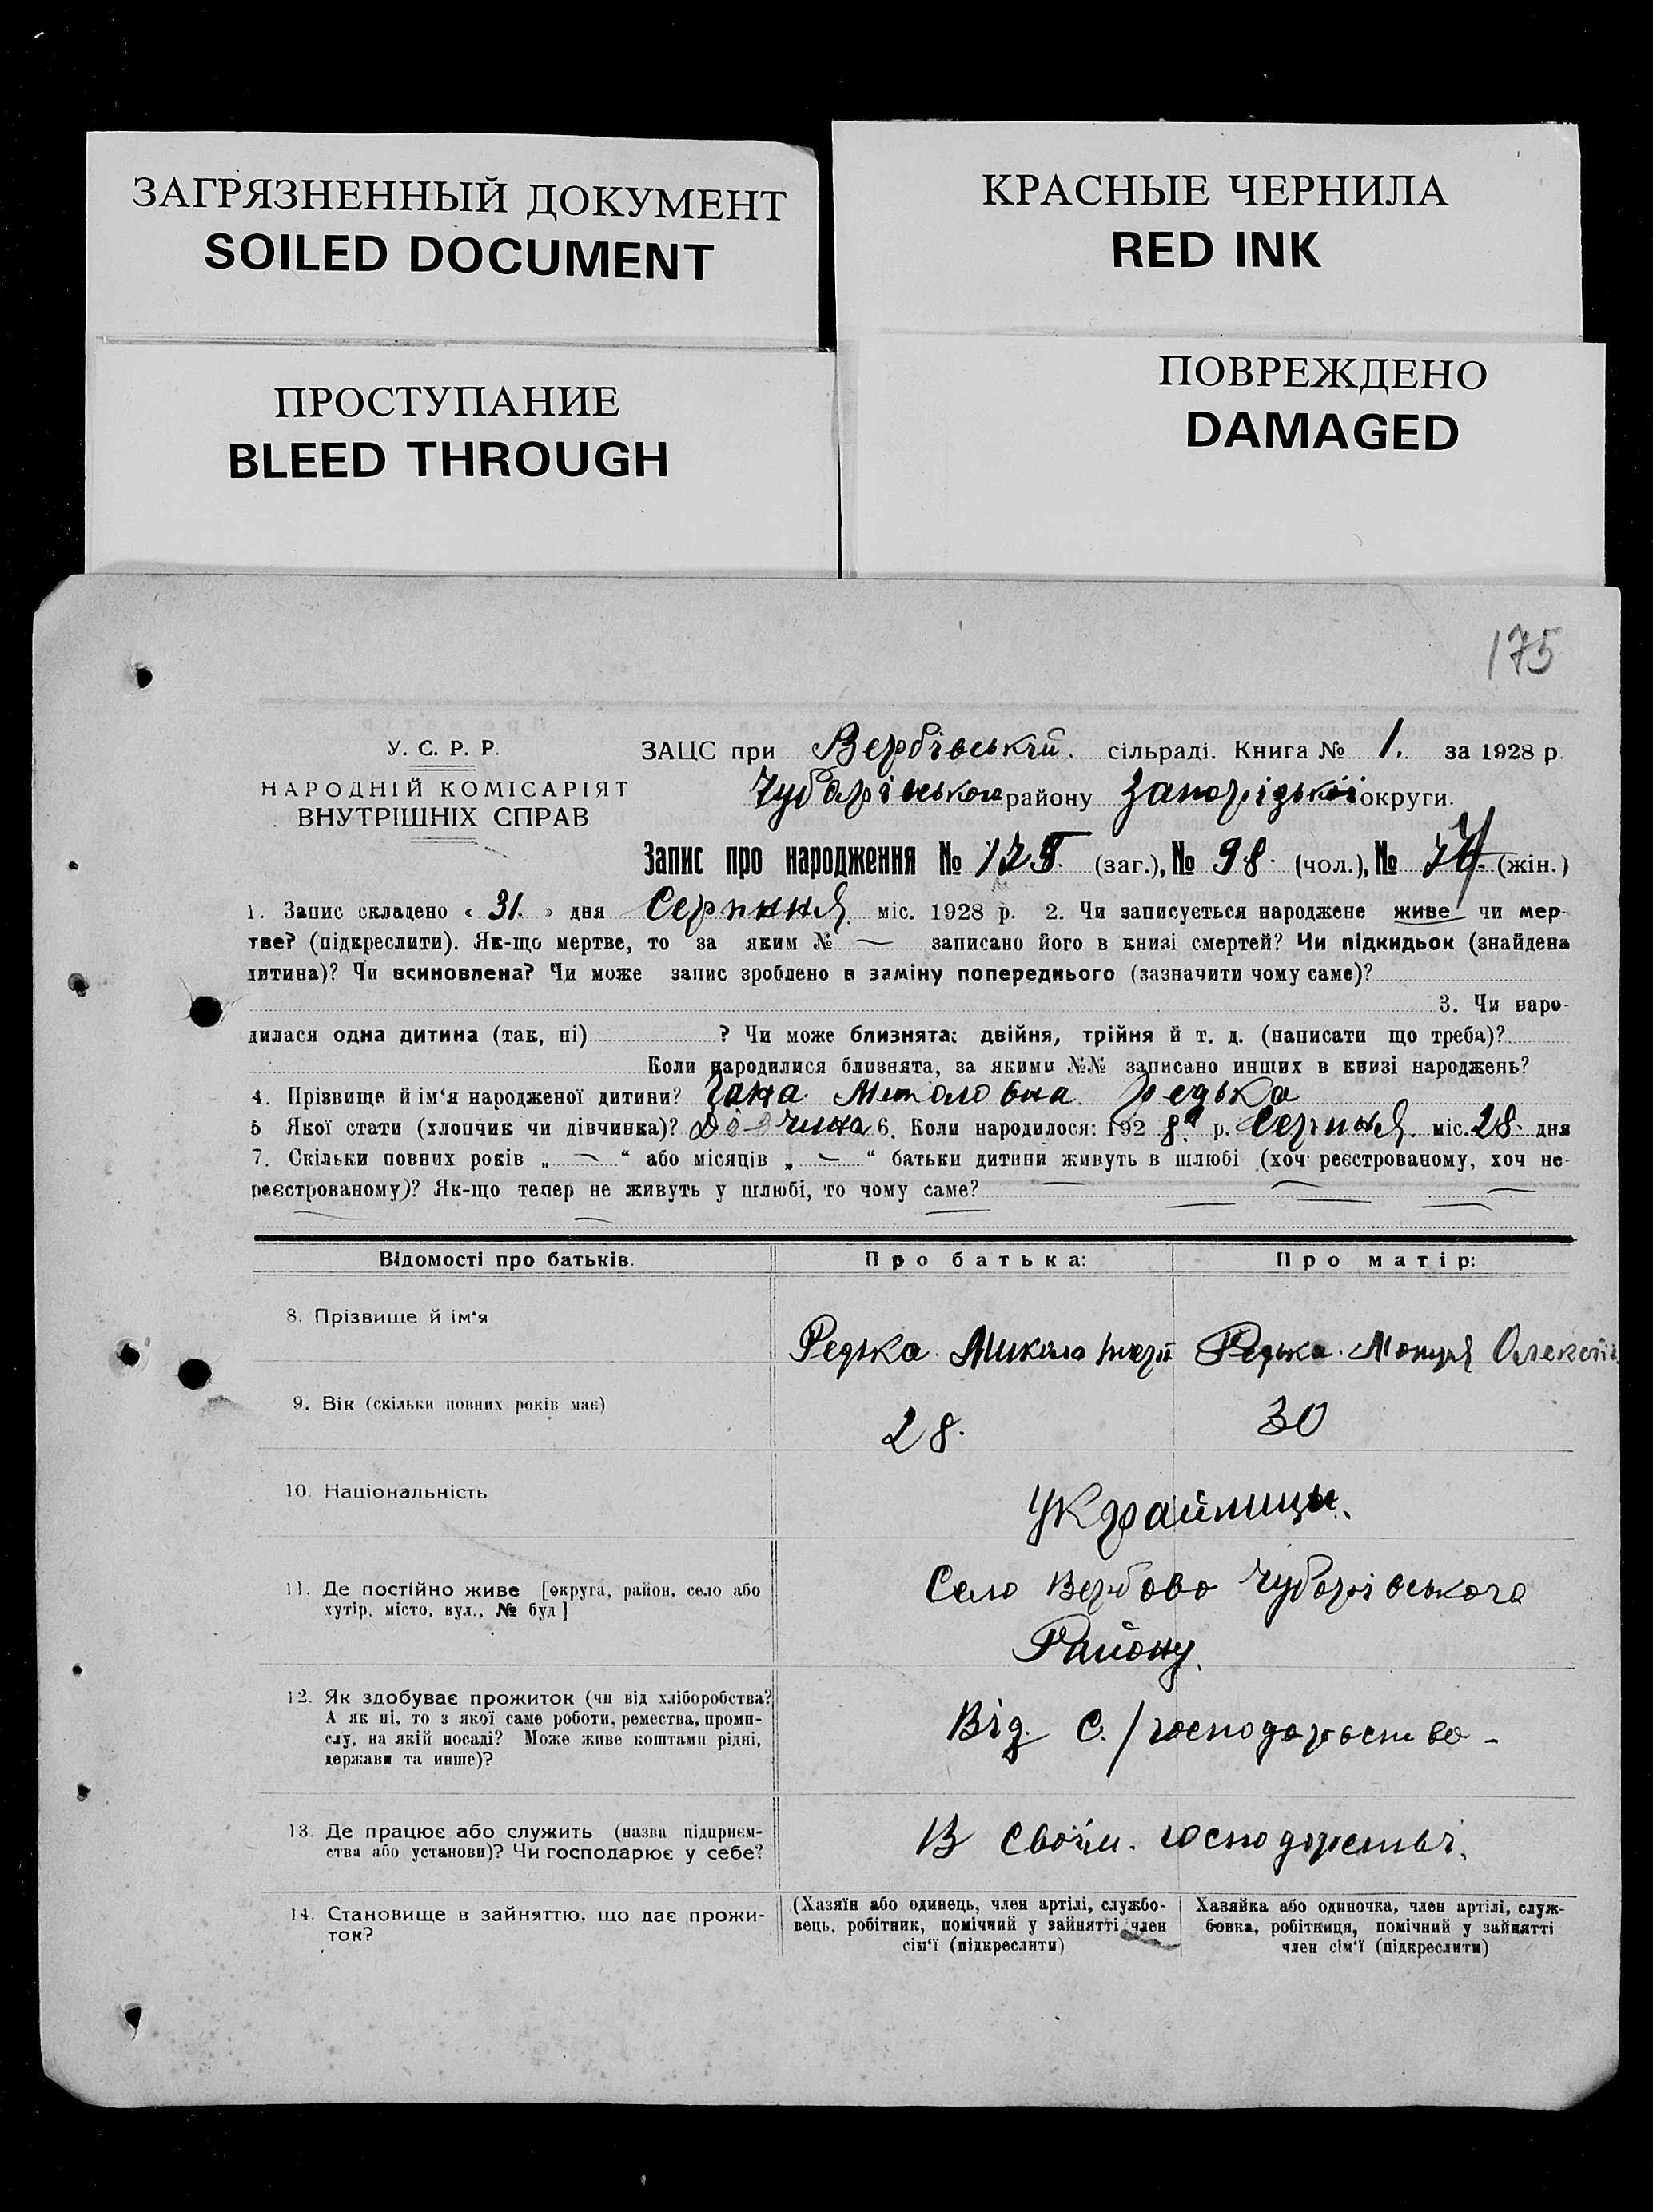 ЗАГРЯЗНЕННЫЙ ДОКУМЕНТ
SOILED DOCUMENT
КРАСНЫЕ ЧЕРНИЛА
RED INK
ПРОСТУПАНИЕ
BLEED THROUGH
ПОВРЕЖДЕНО
DAMAGED
175
У. С. Р. Р.
НАРОДНІЙ КОМІСАРІЯТ
ВНУТРІШНІХ СПРАВ
ЗАЦС при Вербівській. сільраді. Книга № 1. за 1928 р.
Чубарівського району Запорізької округи.
Запис про народження № (заг.), № 98. (чол.), № (жін.)
1. Запис складено « 31. » дня Серпння міс. 1928 р. 2. Чи записується народжене живе чи мер-
тве? (підкреслити). Як-що мертве, то за яким № — записано його в книзі смертей? Чи підкидьок (знайдена
дитина)? Чи всиновлена? Чи може запис зроблено в заміну попереднього (зазначити чому саме)?
3. Чи наро-
дилася одна дитина (так, ні) ? Чи може близнята: двійня, трійня й т. д. (написати що треба)?
Коли народилися близнята, за якими №№ записано инших в книзі народжень?
4. Прізвище й ім‘я народженої дитини? Редька
5 Якої стати (хлопчик чи дівчинка)? Дівчина 6. Коли народилося: 192 8 р. Серпня міс. 28. дня
7. Скільки повних років „ — “ або місяців „ — “ батьки дитини живуть в шлюбі (хоч реєстрованому, хоч не-
реєстрованому)? Як-що тепер не живуть у шлюбі, то чому саме?
Відомості про батьків. Про батька: Про матір:
8. Прізвище й ім‘я Редька Микола Редька Олексії
9. Вік (скільки повних років має) 28. 30
10. Національність Україниці
11. Де постійно живе [округа, район, село або
хутір, місто, вул., № буд]
Село Вербово Чубарівського
Району.
12. Як здобуває прожиток (чи від хліборобства?
А як ні, то з якої саме роботи, ремества, проми-
слу, на якій посаді? Може живе коштами рідні,
держави та инше)?
Від. С./господарство -
13. Де працює або служить (назва підприєм-
ства або установи)? Чи господарює у себе?
В своїм. господарстві.
14. Становище в зайняттю, що дає прожи-
ток?
(Хазяїн або одинець, член артілі, службо-
вець, робітник, помічний у зайнятті член
сім‘ї (підкреслити)
Хазяйка або одиночка, член артілі, служ-
бовка, робітниця, помічний у зайнятті
член сім‘ї (підкреслити)